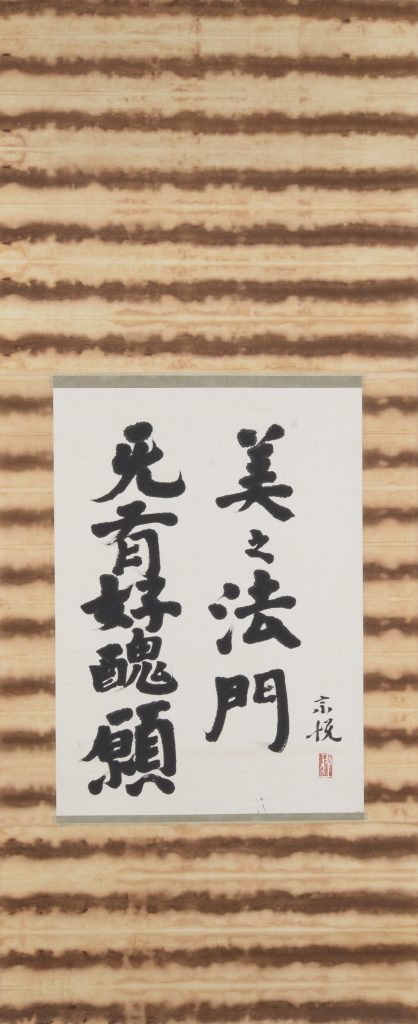 美之法門
无有好醜願
宗悦